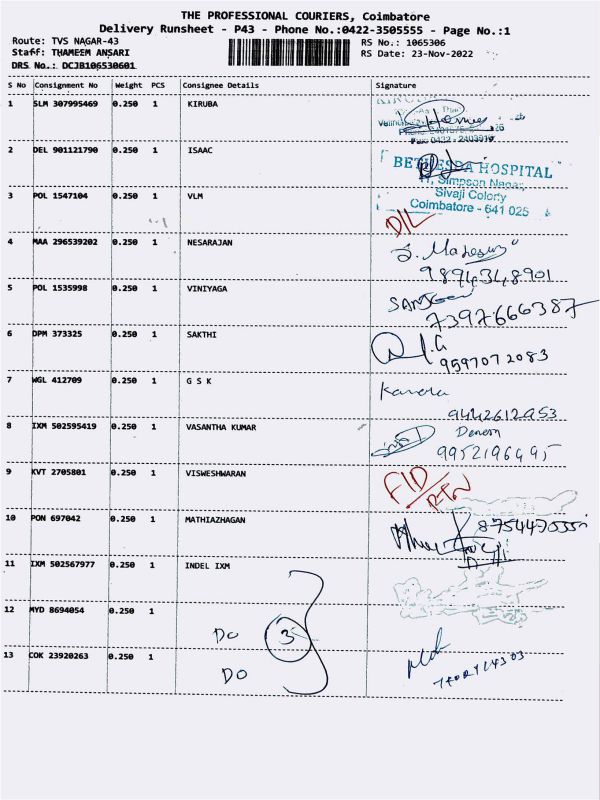 THE PROFESSIONAL COURIERS, Coimbatore
Delivery Runsheet - P43 - Phone No.:0422-3505555 - Page No.:1
Route: TVS NAGAR-43 RS No.: 1065306
Staff: THAMEEM ANSARI RS Date: 23-Nov-2022
DRS No.: DCJB106530601
S No Consignment No Weight PCS Consignee Details Signature
1 SLM 307995469 0.250 1 KIRUBA
2 DEL 901121790 0.250 1 ISAAC
BETHESDA HOSPITAL
11, Simpson Nagar,
3 POL 1547104 0.250 1 VLM Sivaji Colony
Coimbatore - 641 025
D/L
4 MAA 296539202 0.250 1 NESARAJAN
9894348901
5 POL 1535998 0.250 1 VINIYAGA
7397666387
6 DPM 373325 0.250 1 SAKTHI
9597072083
7 WGL 412709 0.250 1 G S K
9442612953
8 IXM 502595419 0.250 1 VASANTHA KUMAR
9952196495
9 KVT 2705801 0.250 1 VISWESHWARAN
10 PON 697042 0.250 1 MATHIAZHAGAN
11 IXM 502567977 0.250 1 INDEL IXM
12 MYD 8694054 0.250 1
DO 3
13 COK 23920263 0.250 1
DO